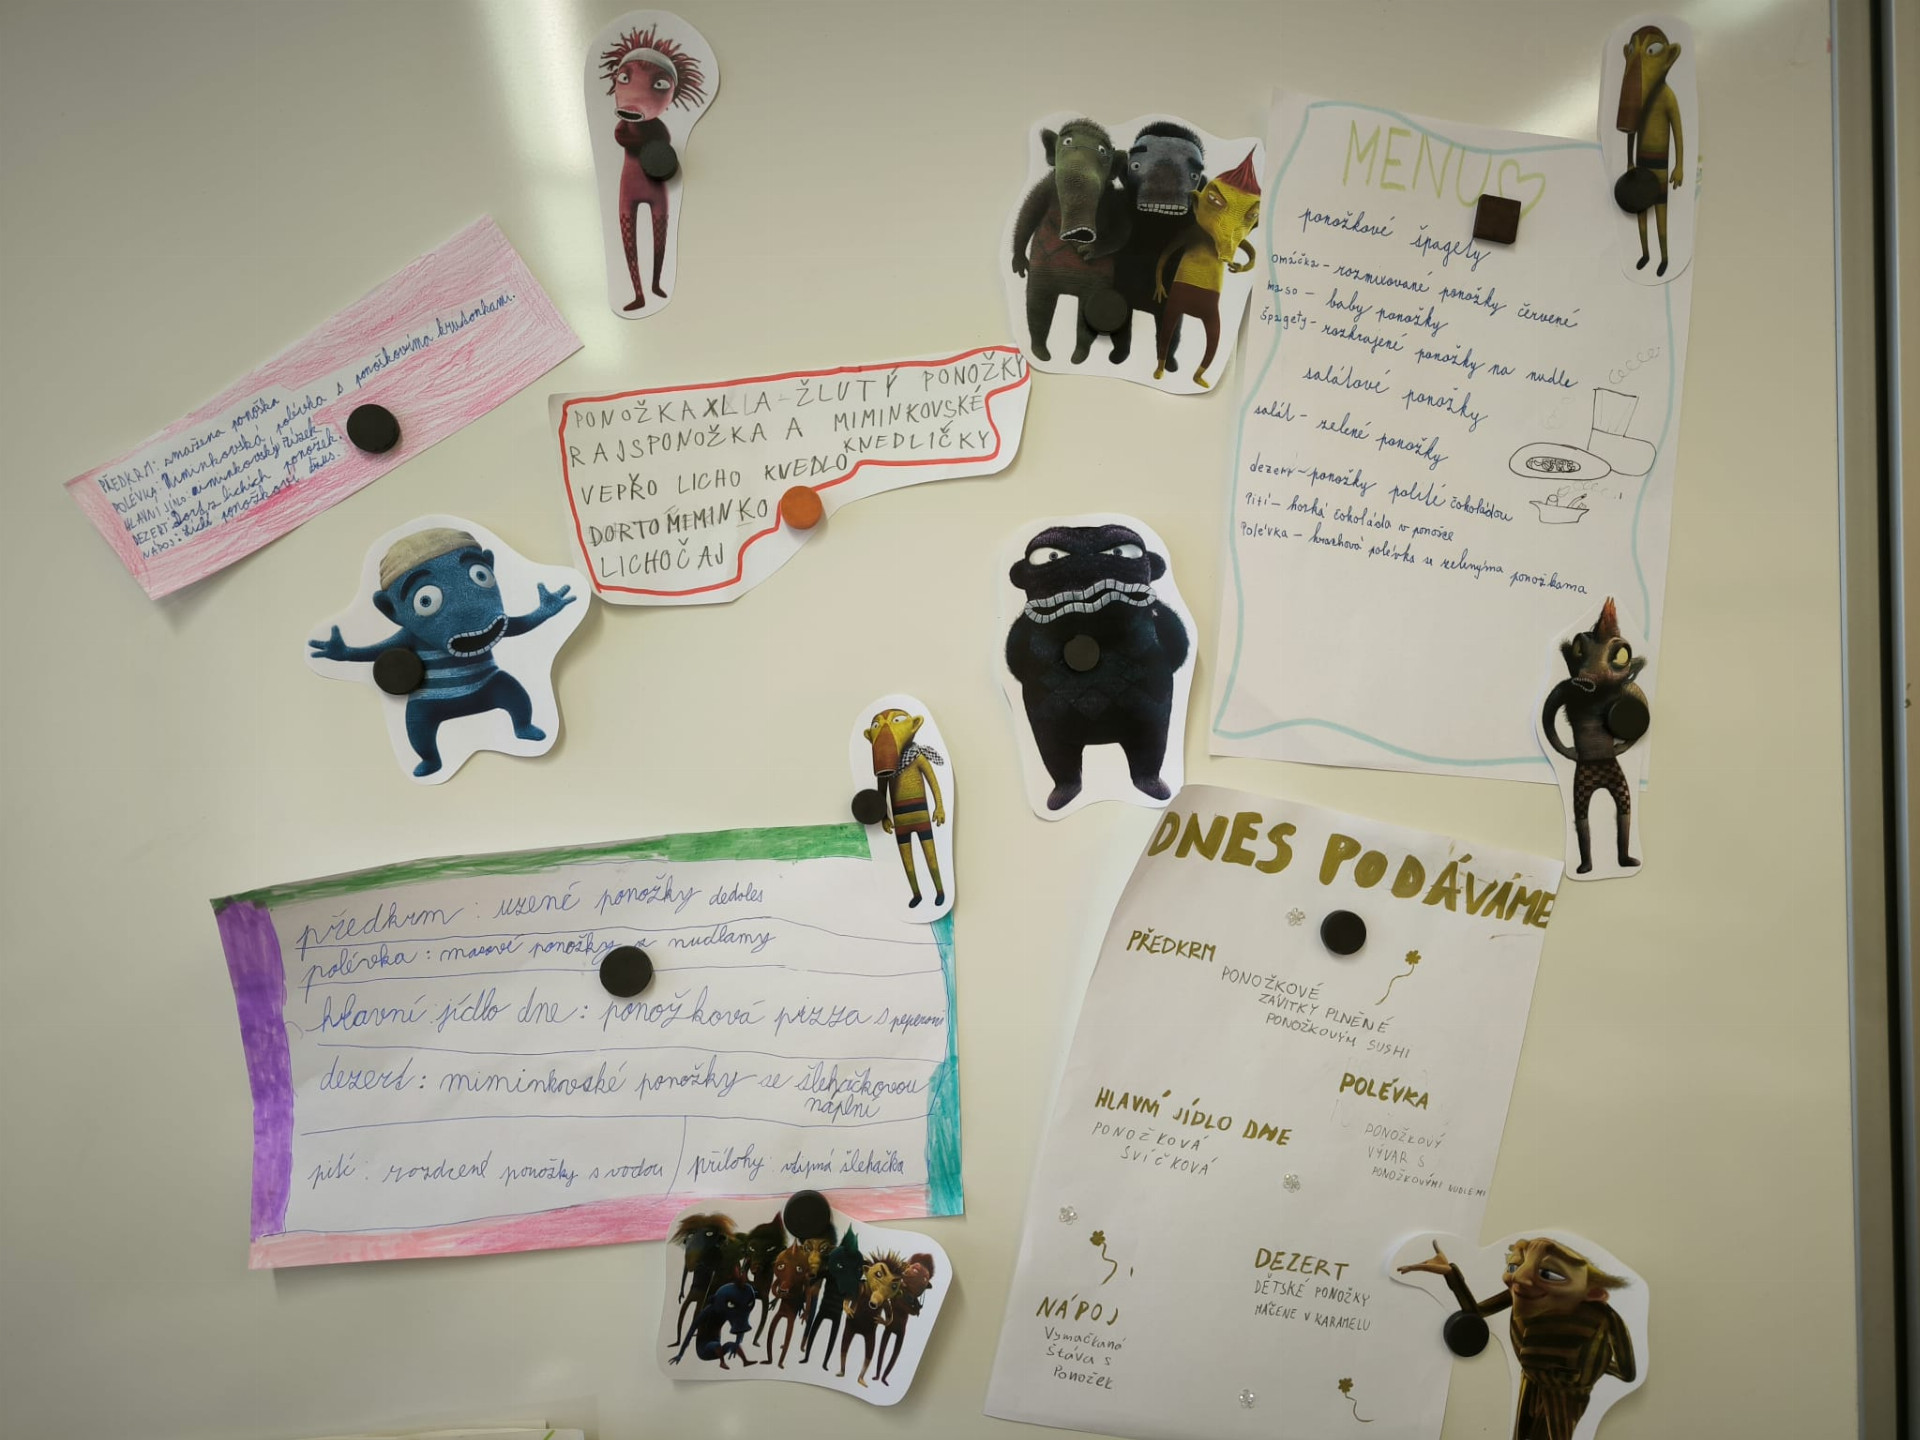 PŘEDKRM: smažena ponožka
POLÉVKA: Miminkovská polévka s ponožkovíma krutonkami.
HLAVNÍ JÍDLO: miminkovský řízek
DEZERT: Dort z lichích ponožek.
NÁPOJ: Lichí ponožkoví
PONOŽKA XLIA-ŽLUTÝ PONOŽKY
RAJSPONOŽKA A MIMINKOVSKÉ
KNEDLIČKY
VEPŘO LICHO KVEDLO
DORTOMIMINKO
LICHOČAJ
MENU
ponožkové špagety
omáčka - rozmixované ponožky červené
maso - baby ponožky
špagety - rozkrajené ponožky na nudle
salátové ponožky
salát - zelené ponožky
dezert - ponožky polité čokoládou
Pití - horká čokoláda v ponožce
Polévka - hrachová polévka se zelenýma ponožkama
předkrm: uzené ponožky dedoles
polévka: masové ponožky z nudlamy
hlavní jídlo dne: ponožková pizza s peperoni
dezert: miminkovské ponožky se šlehačkovou
náplní
pití: rozdcené ponožky s vodou
přílohy: vtipná šlehačka
DNES PODÁVÁME
PŘEDKRM
PONOŽKOVÉ
ZÁVITKY PLNĚNÉ
PONOŽKOVÝM SUSHI
POLÉVKA
PONOŽKOVÝ
VÝVAR S
PONOŽKOVÝMI NUDLEMI
HLAVNÍ JÍDLO DNE
PONOŽKOVÁ
SVÍČKOVÁ
DEZERT
DĚTSKÉ PONOŽKY
MÁČENE V KARAMELU
NÁPOJ
Vymačkaná
šťáva s
Ponožek